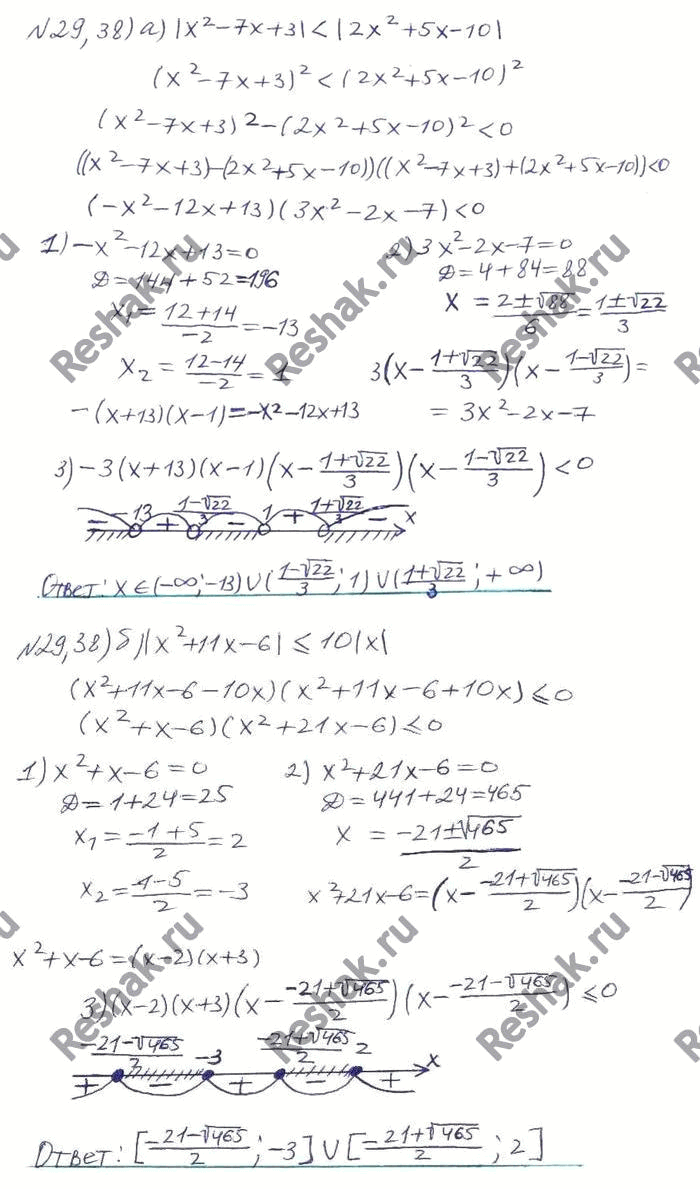 N29,38) а) |x²-7x+3| < |2x²+5x-10|
(x²-7x+3)² < (2x²+5x-10)²
(x²-7x+3)²-(2x²+5x-10)²<0
((x²-7x+3)-(2x²+5x-10))((x²-7x+3)+(2x²+5x-10))<0
(-x²-12x+13)(3x²-2x-7)<0
1) -x²-12x+13=0
Д=144+52=196
x₁=(12+14)/-2=-13
x₂=(12-14)/-2=1
-(x+13)(x-1)=-x²-12x+13
2) 3x²-2x-7=0
Д=4+84=88
x=(2±√88)/6=(1±√22)/3
3(x-(1+√22)/3)(x-(1-√22)/3)=
=3x²-2x-7
3) -3(x+13)(x-1)(x-(1+√22)/3)(x-(1-√22)/3)<0
-13 (1-√22)/3 1 (1+√22)/3 x
- + - + -
Ответ: x∈(-∞;-13)∪((1-√22)/3;1)∪((1+√22)/3;+∞)
N29,38) б) |x²+11x-6| ≤ 10|x|
(x²+11x-6-10x)(x²+11x-6+10x)≤0
(x²+x-6)(x²+21x-6)≤0
1) x²+x-6=0
Д=1+24=25
x₁=(-1+5)/2=2
x₂=(-1-5)/2=-3
2) x²+21x-6=0
Д=441+24=465
x=(-21±√465)/2
x²+21x-6=(x-(-21+√465)/2)(x-(-21-√465)/2)
x²+x-6=(x-2)(x+3)
3) (x-2)(x+3)(x-(-21+√465)/2)(x-(-21-√465)/2)≤0
(-21-√465)/2 -3 (-21+√465)/2 2 x
+ - + - +
Ответ: [(-21-√465)/2;-3]∪[(-21+√465)/2;2]
Reshak.ru
Reshak.ru
Reshak.ru
Reshak.ru
Reshak.ru
Reshak.ru